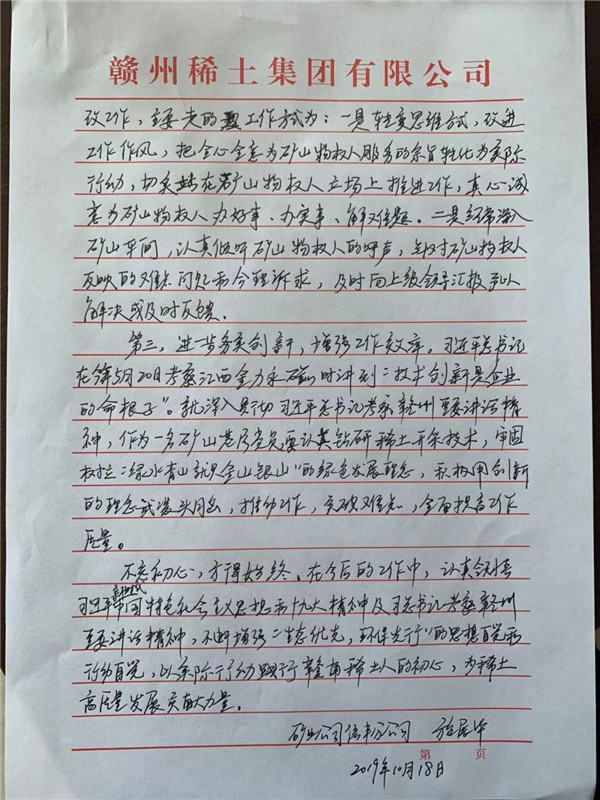 赣州稀土集团有限公司
改工作，主要走的工作方式为：一是转变思维方式，改进
工作作风，把全心全意为矿山物权人服务的宗旨转化为实际
行动，切实站在矿山物权人立场上推进工作，真心诚
意为矿山物权人办好事、办实事、解难题。二是经常深入
矿山车间，认真倾听矿山物权人的呼声，针对矿山物权人
反映的难点问题和合理诉求，及时向上级领导汇报予以
解决或及时反馈。
第三，进一步务实创新，增强工作效率。习近平总书记
在今年5月20日考察江西金力永磁时讲到“技术创新是企业
的命根子”。就深入贯彻习近平总书记考察赣州重要讲话精
神，作为一名矿山基层党员要认真钻研稀土开采技术，牢固
树立“绿水青山就是金山银山”的绿色发展理念，积极用创新
的理念武装头脑，推动工作，突破难点，全面提高工作
质量。
不忘初心，方得始终。在今后的工作中，认真领悟
习近平新时代中国特色社会主义思想和十九大精神及习总书记考察赣州
重要讲话精神，不断增强“生态优先，环保先行”的思想自觉和
行动自觉，以实际行动践行赣南稀土人的初心，为稀土
高质量发展贡献力量。
矿业公司信丰分公司
第 页
2019年10月18日